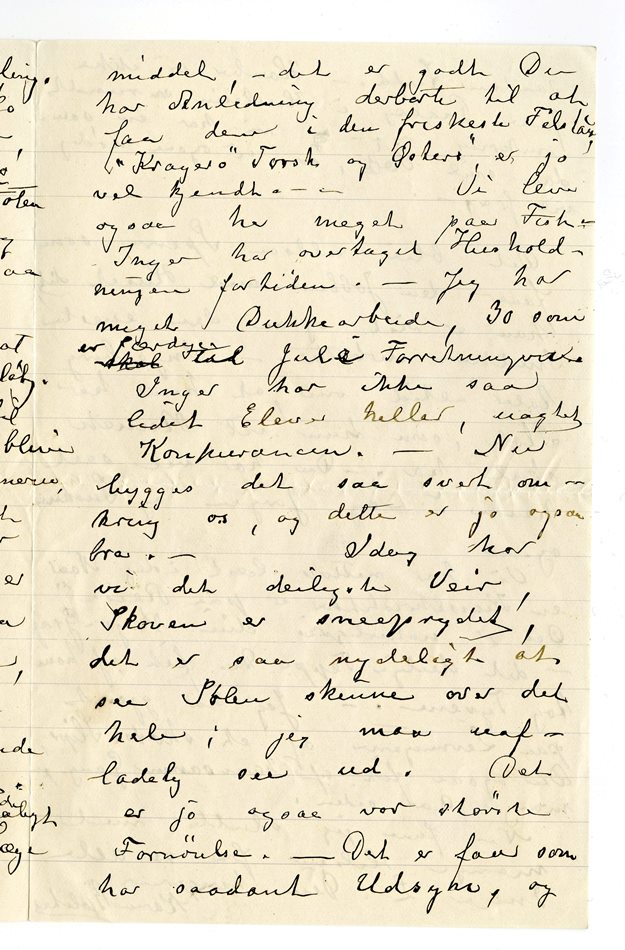 middel, – det er godt Du
har Anledning derborte til at
faa dem i den friskeste Tilstand,
("Kragerö" Torsk og Østers", er jo
vel kjendt. – – Vi lever
ogsaa her meget paa Fisk. –
Inger har overtaget Hushold-
ningen fortiden. – Jeg har
meget Dukkearbeide, 30 som
er færdige
skal til Jule Forretningerne
Inger har ikke saa
lidet Elever heller, uagtet
Konkurancen. – Nu
bygges det saa svert om-
kring os, og dette er jo ogsaa
bra. – Idag har
vi det deiligste Veir,
Skoven er sneeprydet,
det er saa nydeligt at
see Solen skinne over det
hele; jeg maa uaf-
ladelig see ud. Det
er jo ogsaa vor störste
Fornöielse. – Det er faa som
har saadant Udsyn, og